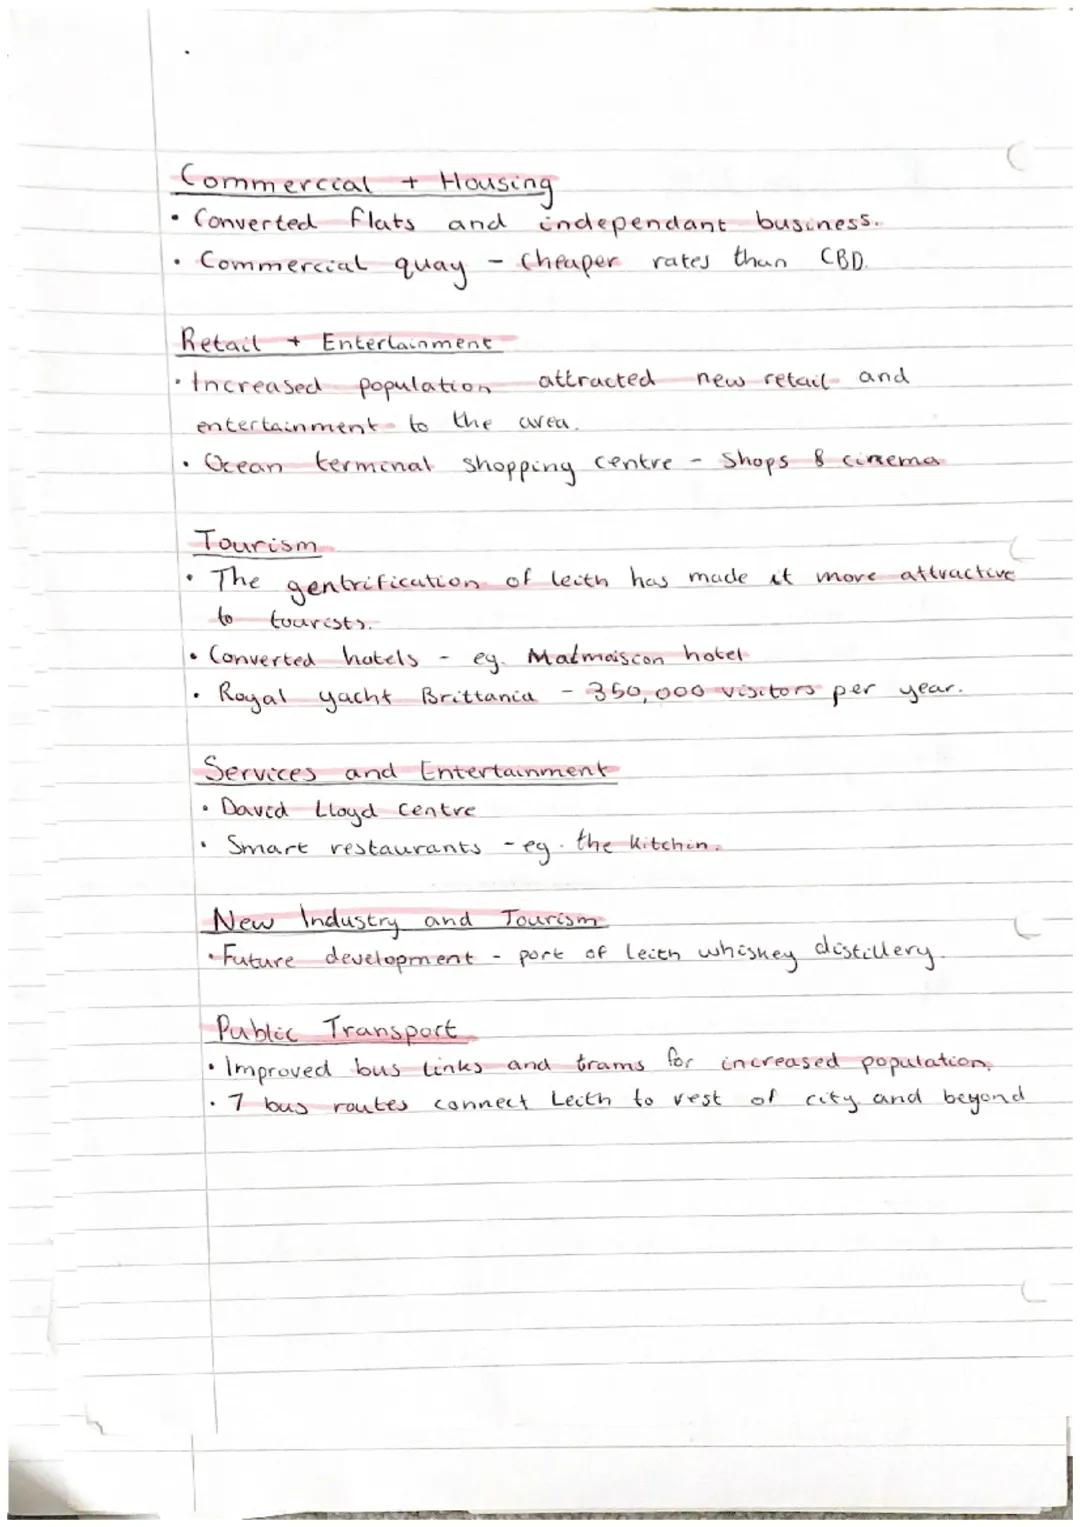 Commercial + Housing
• Converted flats and independant business.
• Commercial quay - Cheaper rates than CBD.
Retail + Entertainment
• Increased population attracted new retail and
entertainment to the area.
• Ocean terminal shopping centre - Shops & cinema
Tourism
• The gentrification of leith has made it more attractive
to tourists.
• Converted hotels - eg. Malmaison hotel
• Royal yacht Brittania - 350,000 visitors per year.
Services and Entertainment
• David Lloyd Centre
• Smart restaurants - eg. the Kitchin.
New Industry and Tourism
• Future development - port of leith whiskey distillery.
Public Transport
• Improved bus links and trams for increased population.
• 7 bus routes connect Leith to rest of city and beyond